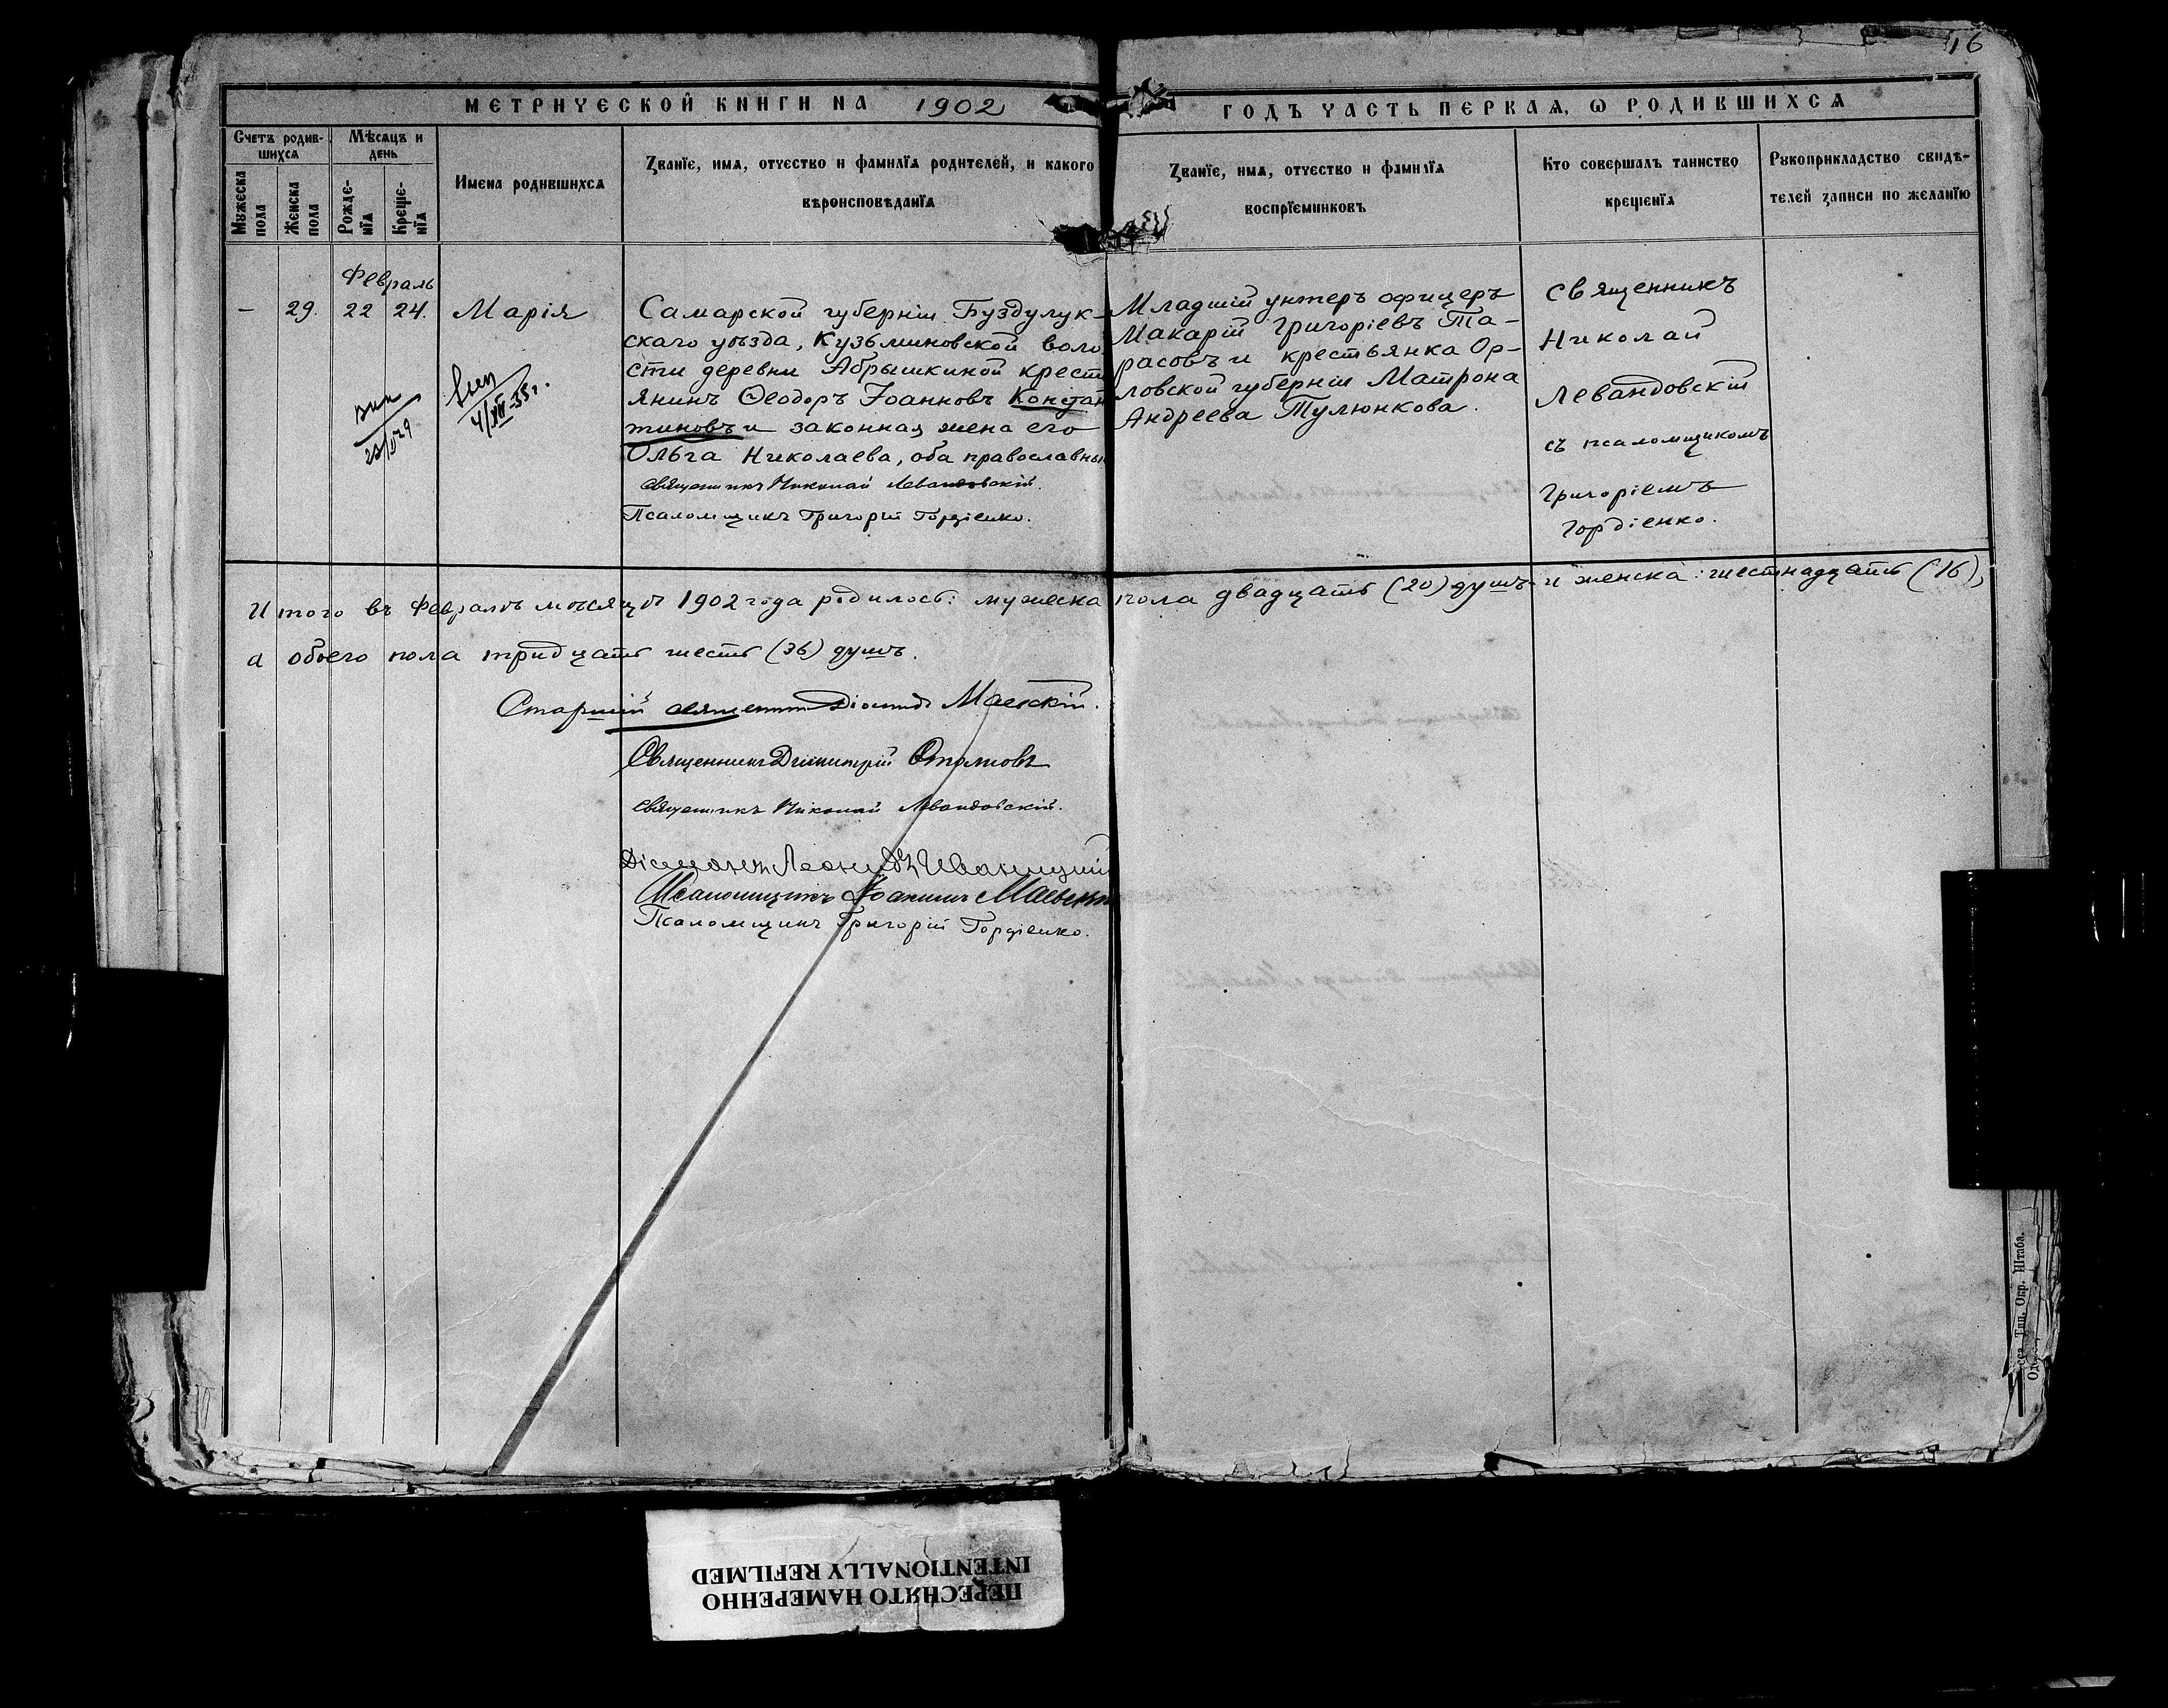 16
МЕТРИЧЕСКОЙ КНИГИ НА 1902 ГОДЪ ЧАСТЬ ПЕРВАЯ, Ѡ РОДИВШИХСЯ
Счетъ родив-
шихся
Мѣсяцъ и
день
Мужеска
пола
Женска
пола
Рожде-
нїя
Креще-
нїя
Имена родившихся
Званїе, имя, отчество и фамилїя родителей, и какого
вѣроисповѣданїя
Званїе, имя, отчество и фамилїя
воспрїемниковъ
Кто совершалъ таинство
крещенїя
Рукоприкладство свидѣ-
телей записи по желанїю
Февраль
- 29. 22 24. Марія
4/XII-55г.
Самарской губерніи Буздулук-
скаго уѣзда, Кузьминовской воло
сти деревни Абрышкиной крестъ
янинъ Ѳеодоръ Іоанновъ Констан
тиновъ и законная жена его
Ольга Николаева, оба православны
Священникъ Николай Левандовскій.
Псаломщикъ Григорій Гордіенко.
Младшій унтеръ офицеръ
Макарій Григоріевъ Та-
расовъ и крестьянка Ор-
ловской губерніи Матрона
Андреева Тулюнкова.
Священникъ
Николай
Левандовскій
съ псаломщикомъ
Григоріемъ
Гордіенко.
Итого въ Февралѣ мѣсяцѣ 1902 года родилось: мужеска пола двадцать (20) душъ и женска: шестнадцать (16),
а обоего пола тридцать шесть (36) душъ.
Старшій священникъ Діомидъ Маевскій.
Священникъ Димитрій
Священникъ Николай Левандовскій.
Діаконъ Леонидъ Иваницкій
Псаломщикъ Іоаннъ Маевскій
Псаломщикъ Григорій Гордіенко.
Тип. Окр. Штаба.
ПЕРЕСНЯТО НАМЕРЕННО
INTENTIONALLY REFILMED